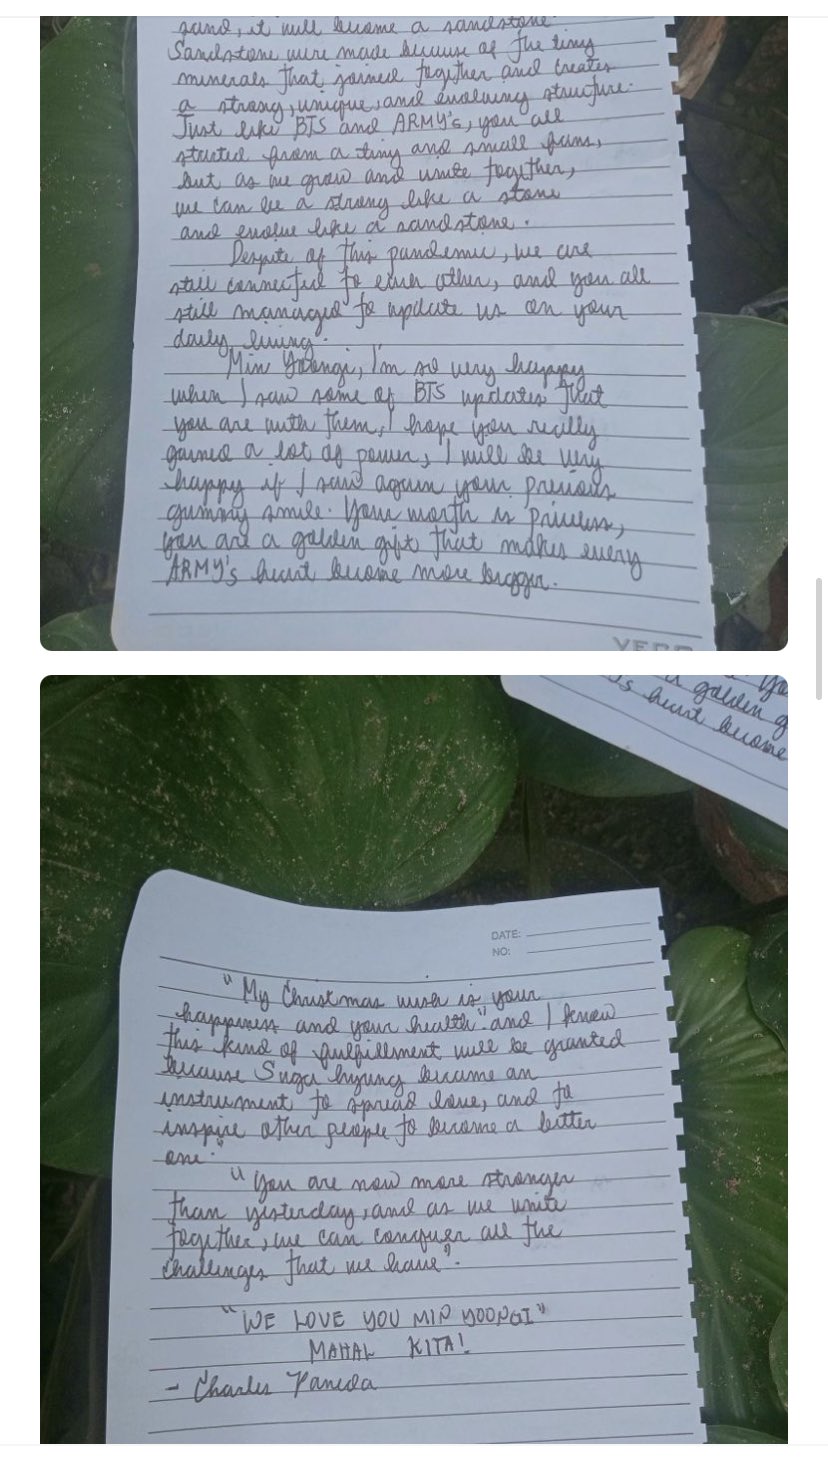 sand, it will become a sandstone.
Sandstone were made because of the tiny
minerals that joined together and creates
a strong, unique, and evolving structure.
Just like BTS and ARMY's, you all
started from a tiny and small fans,
but as we grow and unite together,
we can be a strong like a stone
and evolve like a sandstone.
Despite of this pandemic, we are
still connected to each other, and you all
still managed to update us on your
daily living.
Min Yoongi, I'm so very happy
when I saw some of BTS updates that
you are with them, I hope you really
gained a lot of power, I will be very
happy if I saw again your precious
gummy smile. Your worth is priceless,
you are a golden gift that makes every
ARMY's heart become more bigger.
golden g
's heart become
DATE:
NO:
"My Christmas wish is your
happiness and your health" and I know
this kind of fulfillment will be granted
because Suga hyung became an
instrument to spread love, and to
inspire other people to become a better
one."
"You are now more stronger
than yesterday, and as we unite
together, we can conquer all the
challenges that we have".
"WE LOVE YOU MIN YOONGI"
MAHAL KITA!
- Charles